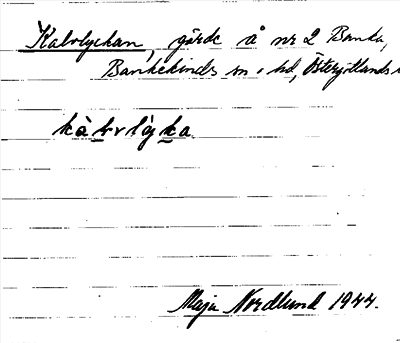 Kalvlyckan, gärde å nr 2 Banka,
Bankekinds sn o hd, Östergötlands
kàlvlỳka
Maja Nordlund 1944.